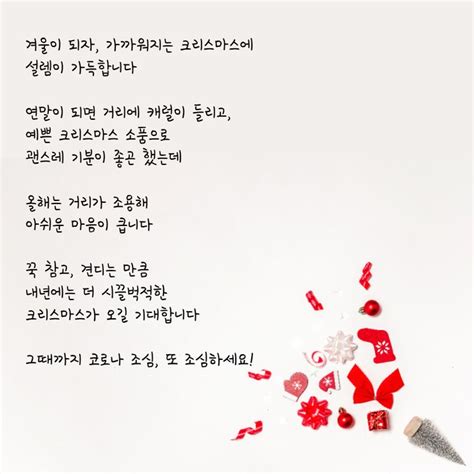 겨울이 되자, 가까워지는 크리스마스에
설렘이 가득합니다
연말이 되면 거리에 캐럴이 들리고,
예쁜 크리스마스 소품으로
괜스레 기분이 좋곤 했는데
올해는 거리가 조용해
아쉬운 마음이 큽니다
꾹 참고, 견디는 만큼
내년에는 더 시끌벅적한
크리스마스가 오길 기대합니다
그때까지 코로나 조심, 또 조심하세요!